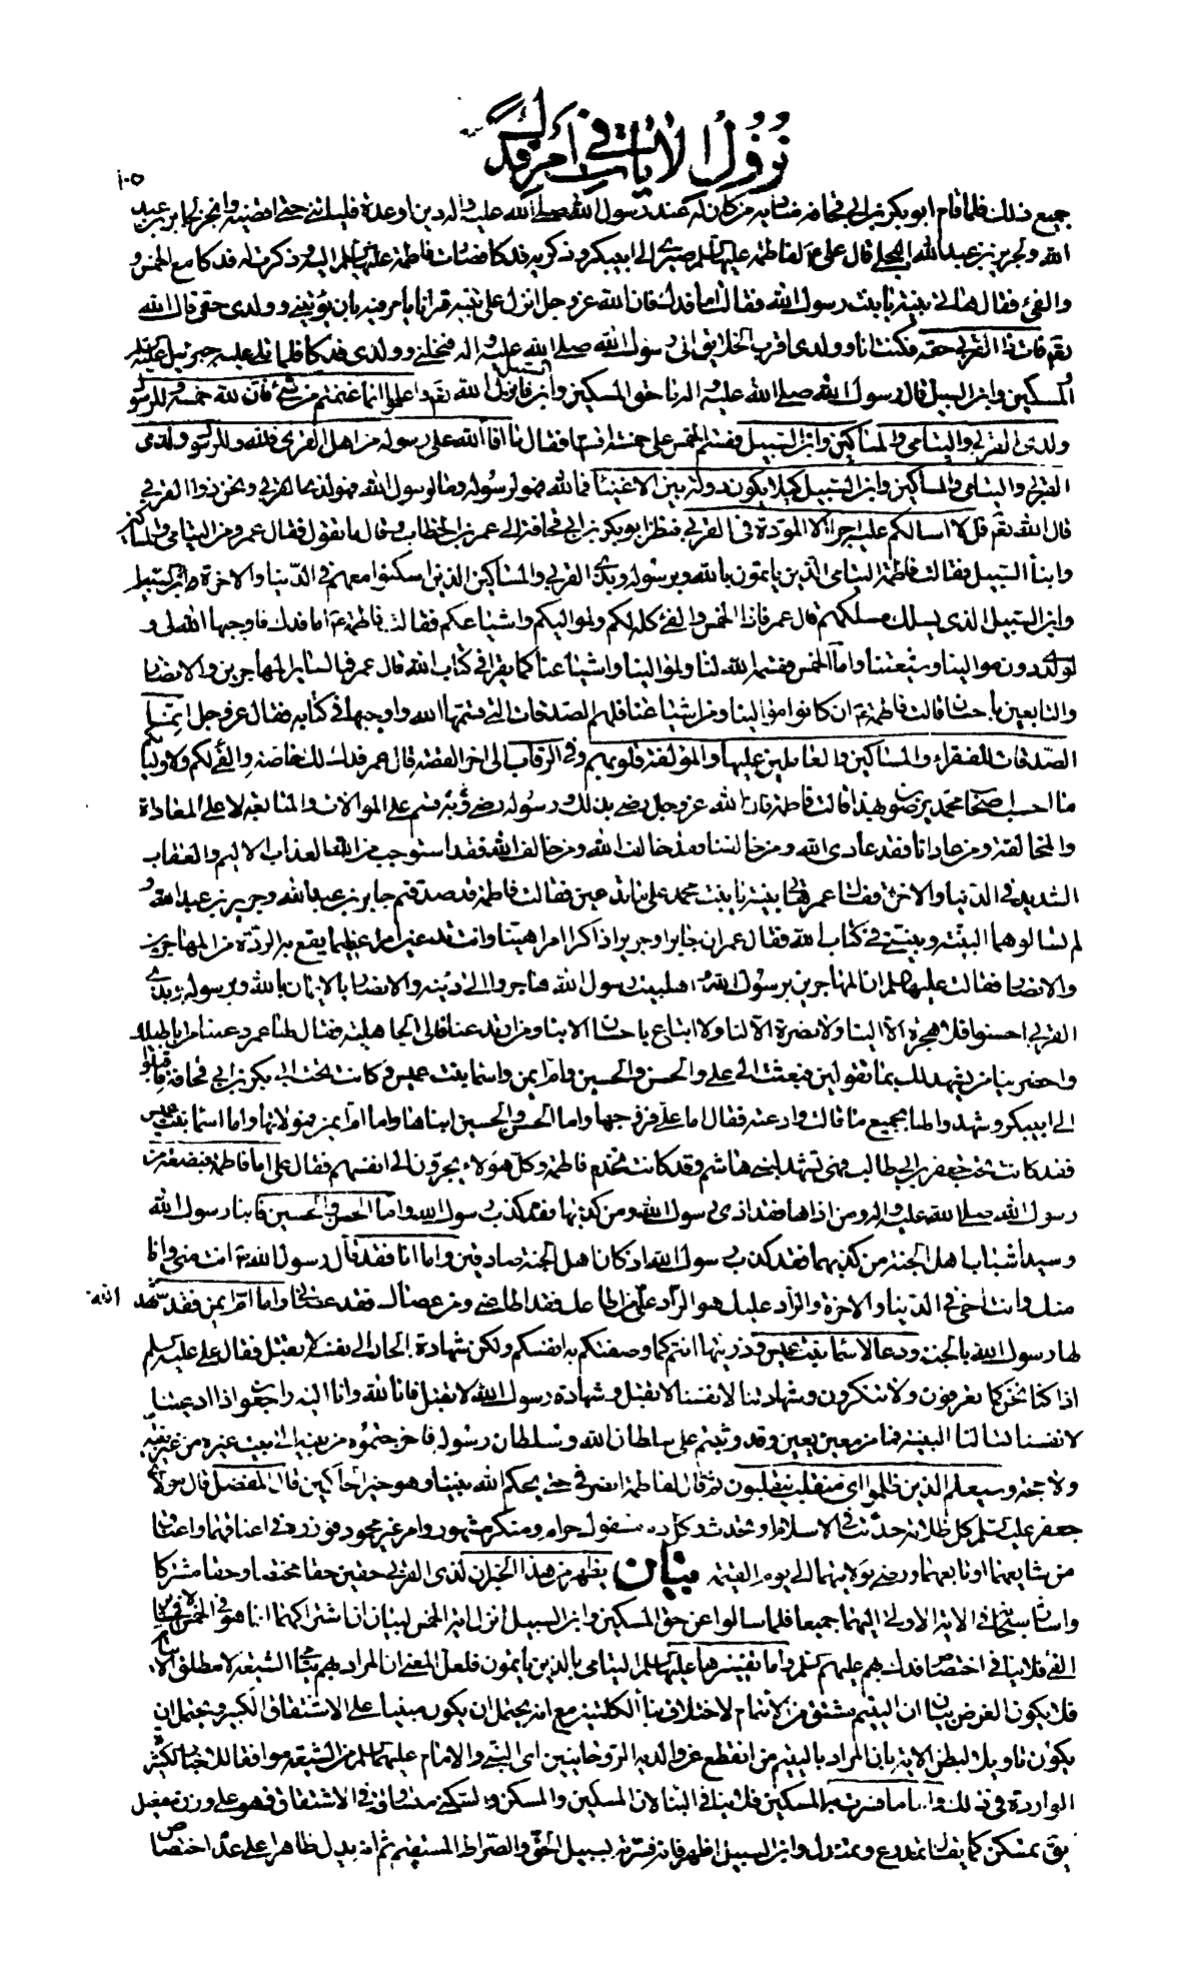 نزول الآيات في أمر فدك
١٠٥
جميع ذلك فلما قام ابو بكر بن ابي قحافة منادیه من كان له عند رسول الله صلى الله عليه واله دين او عدة فلياتني حتى اقضيه وانجز لجابر بن عبد
الله ولجرير بن عبد الله البجلي قال علي ع لفاطمة عليها السلم صيري الى ابي بكر وذكريه فدكا فصارت فاطمة عليها السلم اليه وذكرت له فدكا مع الخمس و
والفئ فقال هاتي بينة يا بنت رسول الله فقالت اما فدك فان الله عز وجل انزل على نبيه قرانا يامر فيه بان يؤتيني وولدي حقي قال الله
تعم فات ذا القربى حقه فكنت انا وولدي اقرب الخلايق الى رسول الله صلى الله عليه واله فنحلني وولدي فدكا فلما تلى عليه جبرئيل عليه السلم
المسكين وابن السبيل قال رسول الله صلى الله عليه واله ما حق المسكين وابن السبيل فانزل الله تعم واعلموا انما غنمتم من شئ فان لله خمسه وللرسول
ولذي القربى واليتامى والمساكين وابن السبيل فقسم الخمس على خمسة اقسام فقال ما افاء الله على رسوله من اهل القرى فلله وللرسول ولذي
القربى واليتامى والمساكين وابن السبيل كيلا يكون دولة بين الاغنياء فما لله فهو لرسوله وما لرسول الله فهو لذي القربى ونحن ذوا القربى
قال الله تعم قل لا اسالكم عليه اجرا الا المودة في القربى فنظر ابو بكر بن ابي قحافة الى عمر بن الخطاب وقال ما تقول فقال عمر ومن اليتامى والمساكين
وابناء السبيل فقالت فاطمة اليتامى الذين ياتمون بالله وبرسوله وبذي القربى والمساكين الذين اسكنوا معهم في الدنيا والاخرة وابن السبيل
وابن السبيل الذي يسلك مسلكهم قال عمر فاذا الخمس والفئ كله لكم ولمواليكم واشياعكم فقالت فاطمة ع اما فدك فاوجبها الله لي و
لولدي دون موالينا وشيعتنا واما الخمس فقسمه الله لنا ولموالينا واشياعنا كما يقرا في كتاب الله قال عمر فما لساير المهاجرين والانصار
والتابعين باحسان قالت فاطمة ع ان كانوا موالينا ومن اشياعنا فلهم الصدقات التي قسمها الله واوجبها في كتابه فقال عز وجل انما
الصدقات للفقراء والمساكين والعاملين عليها والمؤلفة قلوبهم وفي الرقاب الى اخر القصة قال عمر فدك لك خاصة والفئ لكم ولاوليائكم
ما احسب اصحاب محمد يرضون بهذا قالت فاطمة فان الله عز وجل رضي بذلك ورسوله رضي به وقسم على الموالاة والمتابعة لا على المعاداة
والمخالفة ومن عادانا فقد عادى الله ومن خالفنا فقد خالف الله ومن خالف الله فقد استوجب من الله العذاب الاليم والعقاب
الشديد في الدنيا والاخرة فقال عمر هاتي بينة يا بنت محمد على ما تدعين فقالت فاطمة قد صدقتم جابر بن عبد الله وجرير بن عبد الله و
لم تسالوهما البينة وبينتي في كتاب الله فقال عمر ان جابرا وجريرا ذكرا امرا هينا وانت تدعين امرا عظيما يقع به الردة من المهاجرين
والانصار فقالت عليها السلم ان المهاجرين برسول الله واهل بيت رسول الله هاجروا الى دينه والانصار بالايمان بالله وبرسوله وبذي
القربى احسنوا فلا هجرة الا الينا ولا نصرة الا لنا ولا اتباع باحسان الا بنا ومن ارتد عنا فالى الجاهلية فقال لها عمر دعينا من اباطيلك
واحضرينا من يشهد لك بما تقولين فبعثت الى علي والحسن والحسين وام ايمن واسماء بنت عميس وكانت تحت ابي بكر بن ابي قحافة فاقبلوا
الى ابي بكر وشهدوا لها بجميع ما قالت وادعته فقال اما علي فزوجها واما الحسن والحسين ابناها واما ام ايمن فمولاتها واما اسماء بنت عميس
فقد كانت تحت جعفر بن ابي طالب فهي تشهد لبني هاشم وقد كانت تخدم فاطمة وكل هؤلاء يجرون الى انفسهم فقال علي اما فاطمة فبضعة من
رسول الله صلى الله عليه واله ومن اذاها فقد اذى رسول الله ومن كذبها فقد كذب رسول الله واما الحسن والحسين فابنا رسول الله
وسيدا شباب اهل الجنة من كذبهما فقد كذب رسول الله اذ كان اهل الجنة صادقين واما انا فقد قال رسول الله ص انت مني وانا
منك وانت اخي في الدنيا والاخرة والراد عليك هو الراد علي من اطاعك فقد اطاعني ومن عصاك فقد عصاني واما ام ايمن فقد شهد
لها رسول الله بالجنة ودعا لاسماء بنت عميس وذريتها قال عمر انتم كما وصفتكم به انفسكم ولكن شهادة الجار الى نفسه لا تقبل فقال علي عليه السلم
اذا كنا نحن كما تعرفون ولا تنكرون وشهادتنا لانفسنا لا تقبل وشهادة رسول الله لا تقبل فانا لله وانا اليه راجعون اذا ادعينا
لانفسنا تسالنا البينة فما من معين يعين وقد وثبتم على سلطان الله وسلطان رسوله فاخرجتموه من بيته الى بيت غيره من غير بينة
ولا حجة وسيعلم الذين ظلموا اي منقلب ينقلبون ثم قال لفاطمة انصرفي حتى يحكم الله بيننا وهو خير الحاكمين قال المفضل قال مولاي
جعفر عليه السلم كل ظلامة حدثت في الاسلام او تحدث وكل دم مسفوك حرام ومنكر مشهور وامر غير محمود فوزره في اعناقهما واعناق
من شايعهما او تابعهما ورضي بولايتهما الى يوم القيمة بيان يظهر من هذا الخبر ان لذي القربى حقين حقا مختصا وحقا مشتركا
واشار سبحانه في الاية الاولى اليهما جميعا فلما سالوا عن حق المسكين وابن السبيل انزل اية الخمس لبيان ان اشتراكهما انما هو في الخمس لا في ساير
الفئ فلا ينافي اختصاص فدك بهم عليهم السلم واما تفسيرها عليها السلم اليتامى بالذين ياتمون فلعل المعنى ان المراد بهم يتامى الشيعة لا مطلق الايتام
فلا يكون الغرض بيان ان اليتيم مشتق من الايتمام لاختلاف بناء الكلمتين مع انه يحتمل ان يكون مبنيا على الاشتقاق الكبير ويحتمل ان
يكون تاويلا لبطن الاية بان المراد باليتيم من انقطع عن والديه الروحانيين اي النبي والامام عليهما السلم من الشيعة موافقا للاخبار الكثيرة
الواردة في ذلك واما ما فسرت به المسكين فلا ينافي البناء لان المسكين والمسكن والسكنى متساوقة في الاشتقاق وهو على وزن مفعيل
يق تمسكن كما يقال تمدرع وتمندل وابن السبيل اظهر فانه فسرته بسبيل الحق والصراط المستقيم ثم انه يدل ظاهرا على عدم اختصاص